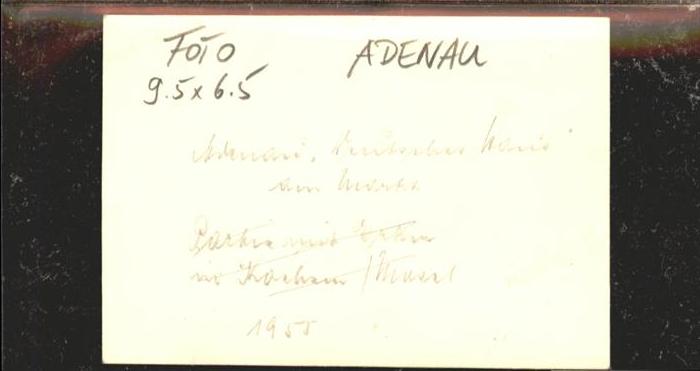 FOTO ADENAU
9.5 x 6.5
Adenau, "Deutsches Haus"
am Markt
Partie mit
in Kochem / Mosel
1955